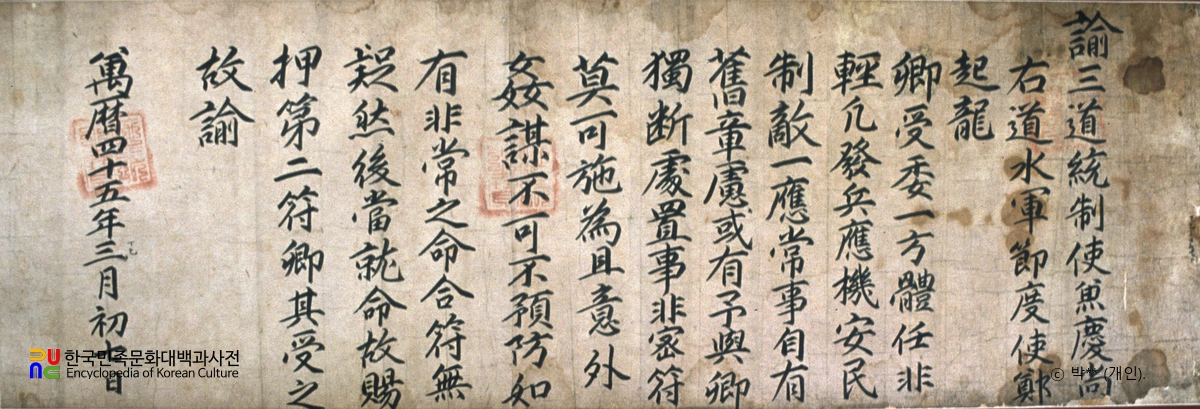 諭三道統制使兼慶尙
右道水軍節度使鄭
起龍
卿受委一方體任非
輕凡發兵應機安民
制敵一應常事自有
舊章慮或有予與卿
獨斷處置事非密符
莫可施為且意外
姦謀不可不預防如
有非常之命合符無
疑然後當就命故賜
押第二符卿其受之
故諭
萬曆四十五年三月初七日
丁巳
한국민족문화대백과사전
Encyclopedia of Korean Culture
ⓒ 박** (개인).